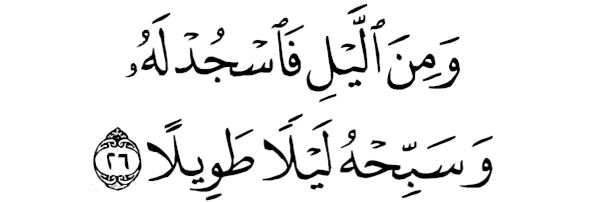 وَمِنَ ٱلَّيۡلِ فَٱسۡجُدۡ لَهُۥ
وَسَبِّحۡهُ لَيۡلٗا طَوِيلًا ٢٦